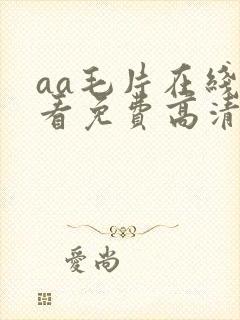 aa毛片在綫
看免費高清
愛尚